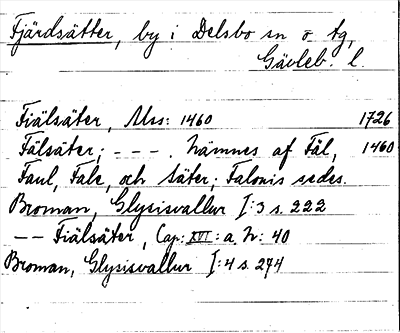 Fjärdsätter, by i Delsbo sn o tg,
Gävleb. l.
Fiälsäter, Mss: 1460 1726
Fälsäter; - - - . Nämnes af Fäl, 1460
Faul, Fale, och säter; Falonis sedes.
Broman, Glysisvallur I:3 s. 222
-- Fiälsäter, Cap: XVI: a. N: 40
Broman, Glysisvallur I:4 s. 274